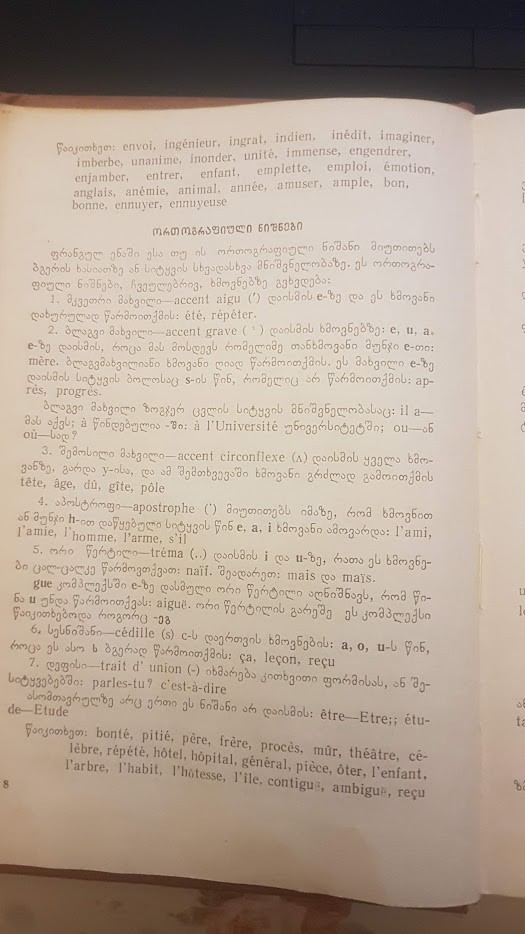 წაიკითხეთ: envoi, ingénieur, ingrat, indien, inédit, imaginer,
imberbe, unanime, inonder, unité, immense, engendrer,
enjamber, entrer, enfant, emplette, emploi, émotion,
anglais, anémie, animal, année, amuser, ample, bon,
bonne, ennuyer, ennuyeuse
ორთოგრაფიული ნიშნები
ფრანგულ ენაში ესა თუ ის ორთოგრაფიული ნიშანი მიუთითებს
ბგერის ხასიათზე ან სიტყვის სხვადასხვა მნიშვნელობაზე. ეს ორთოგრა-
ფიული ნიშნები, ჩვეულებრივ, ხმოვნებზე გვხვდება:
1. მკვეთრი მახვილი—accent aigu (ʹ) დაისმის e-ზე და ეს ხმოვანი
დახურულად წარმოითქმის: été, répéter.
2. ბლაგვი მახვილი—accent grave (ˋ) დაისმის ხმოვნებზე: e, u, a.
e-ზე დაისმის, როცა მას მოსდევს რომელიმე თანხმოვანი მუნჯი e-თი:
mère. ბლაგვმახვილიანი ხმოვანი ღიად წარმოითქმის. ეს მახვილი e-ზე
დაისმის სიტყვის ბოლოსაც s-ის წინ, რომელიც არ წარმოითქმის: ap-
rés, progrés.
ბლაგვი მახვილი ზოგჯერ ცვლის სიტყვის მნიშვნელობასაც: il a—
მას აქვს; à წინდებულია -ში: à l'Université უნივერსიტეტში; ou—ან
où—სად?
3. შემოსილი მახვილი—accent circonflexe (ʌ) დაისმის ყველა ხმო-
ვანზე, გარდა y-ისა, და ამ შემთხვევაში ხმოვანი გრძლად გამოითქმის
tête, âge, dû, gîte, pôle
4. აპოსტროფი—apostrophe (') მიუთითებს იმაზე, რომ ხმოვნით
ან მუნჯი h-ით დაწყებული სიტყვის წინ e, a, i ხმოვანი ამოვარდა: l'ami,
l'amie, l'homme, l'arme, s'il
5. ორი წერტილი—tréma (..) დაისმის i და u-ზე, რათა ეს ხმოვნე-
ბი ცალ-ცალკე წარმოვთქვათ: naïf. შეადარეთ: mais და maïs.
gue კომპლექსში e-ზე დასმული ორი წერტილი აღნიშნავს, რომ წი-
ნა u უნდა წარმოითქვას: aiguë. ორი წერტილის გარეშე ეს კომპლექსი
წაიკითხებოდა როგორც -ეგ
6. სესნიშანი—cédille (s) c-ს დაერთვის ხმოვნების: a, o, u-ს წინ,
როცა ეს ასო ს ბგერად წარმოითქმის: ça, leçon, reçu
7. დეფისი—trait d' union (-) იხმარება კითხვითი ფორმისას, ან შე-
სიტყვებებში: parles-tu? c'est-à-dire
ასომთავრულზე არც ერთი ეს ნიშანი არ დაისმის: être—Etre;; étu-
de—Etude
წაიკითხეთ: bonté, pitié, père, frère, procès, mûr, théâtre, cé-
lèbre, répété, hôtel, hôpital, général, pièce, ôter, l'enfant,
l'arbre, l'habit, l'hôtesse, l'île, contiguë, ambiguë, reçu
8